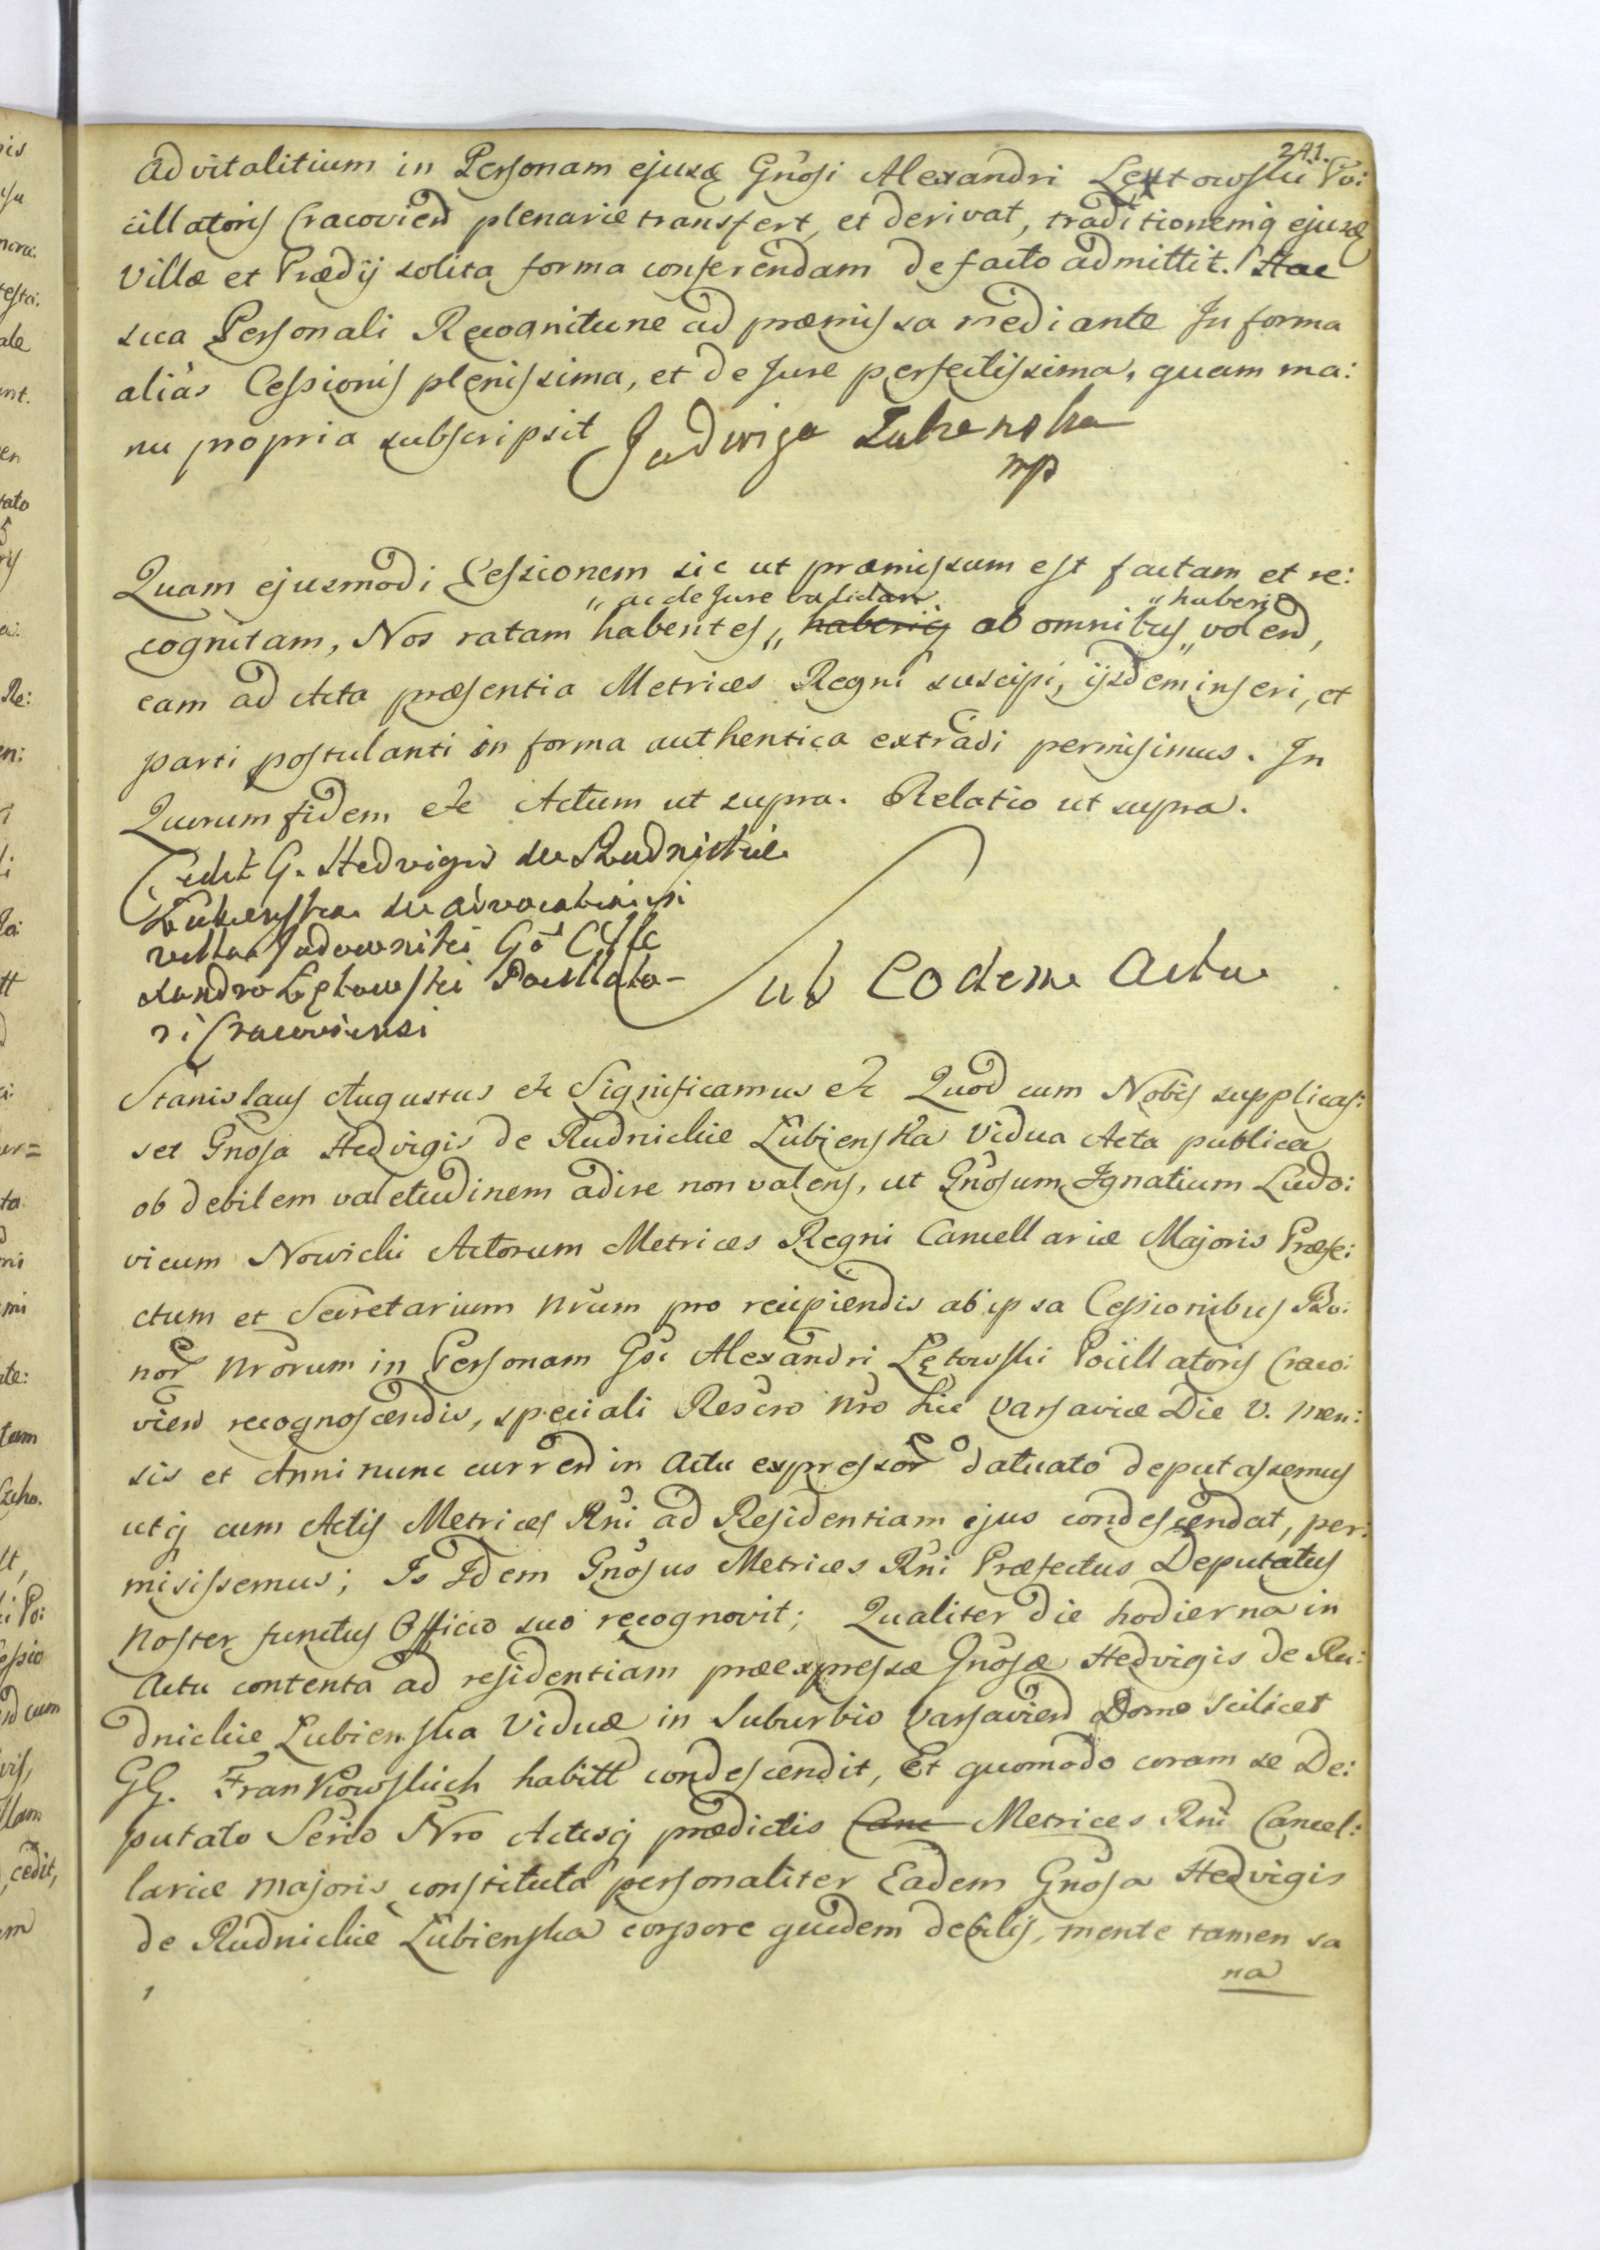 241.
Advitalitium in Personam ejusq Gnosi Alexandri Lętowski Po:
cillatoris Cracovien plenarie transfert, et derivat, traditionemq ejusq
Villæ et Prædij solita forma conferendam de facto admittit. Hac
sua Personali Recognitione ad præmissa mediante In forma
aliàs Cessionis plenissima, et de Jure perfectissima, quam ma:
nu propria subscripsit Jadwiga Lubienska
mp
Quam ejusmodi Cessionem sic ut præmissum est factam et re:
„ ac de Jure validam „ haberi
cognitam, Nos ratam habentes „ haberiq ab omnibus „ volen,
eam ad Acta præsentia Metrices Regni suscipi, ijsdem inseri, et
parti postulanti in forma authentica extradi permisimus. In
Quorum fidem &c Actum ut supra. Relatio ut supra.
Cedit G. Hedvigis de Rudnickie
Lubienska de advocatia in
villa Jadowniki Go Ale
xandro Lętowski Pocillato-
ri Cracoviensi
ub Eodem Actu
Stanislaus Augustus &c Significamus &c Quod cum Nobis supplicas:
set Gnosa Hedvigis de Rudnickie Lubienska Vidua Acta publica
ob debilem valetudinem adire non valens, ut Gnosum Ignatium Ludo:
vicum Nowicki Actorum Metrices Regni Cancellariæ Majoris Præfe:
ctum et Secretarium Nrum pro recipiendis ab ipsa Cessionibus Bo:
nor Nrorum in Personam Gsi Alexandri Lętowski Pocillatoris Craco:
vien recognoscendis, speciali Rescro Nro hic Varsaviæ Die V. Men:
sis et Anni nunc curren in Actu expressor datuato deputassemus
utq cum Actis Metrices Rni ad Residentiam ejus condescendat, per:
misissemus; Is Idem Gnosus Metrices Rni Præfectus Deputatus
Noster functus Officio suo recognovit; Qualiter die hodierna in
Actu contenta ad residentiam præexpressæ Gnosæ Hedvigis de Ru:
dnickie Lubienska Viduæ in Suburbio Varsavien Domo scilicet
GG. Frankowskich habitt condescendit, Et quomodo coram se De:
putato Serio Nro Actisq prædictis Canc Metrices Rni Cancel:
lariæ Majoris constituta personaliter Eadem Gnosa Hedvigis
de Rudnickie Lubienska corpore quidem debilis, mente tamen sa
na